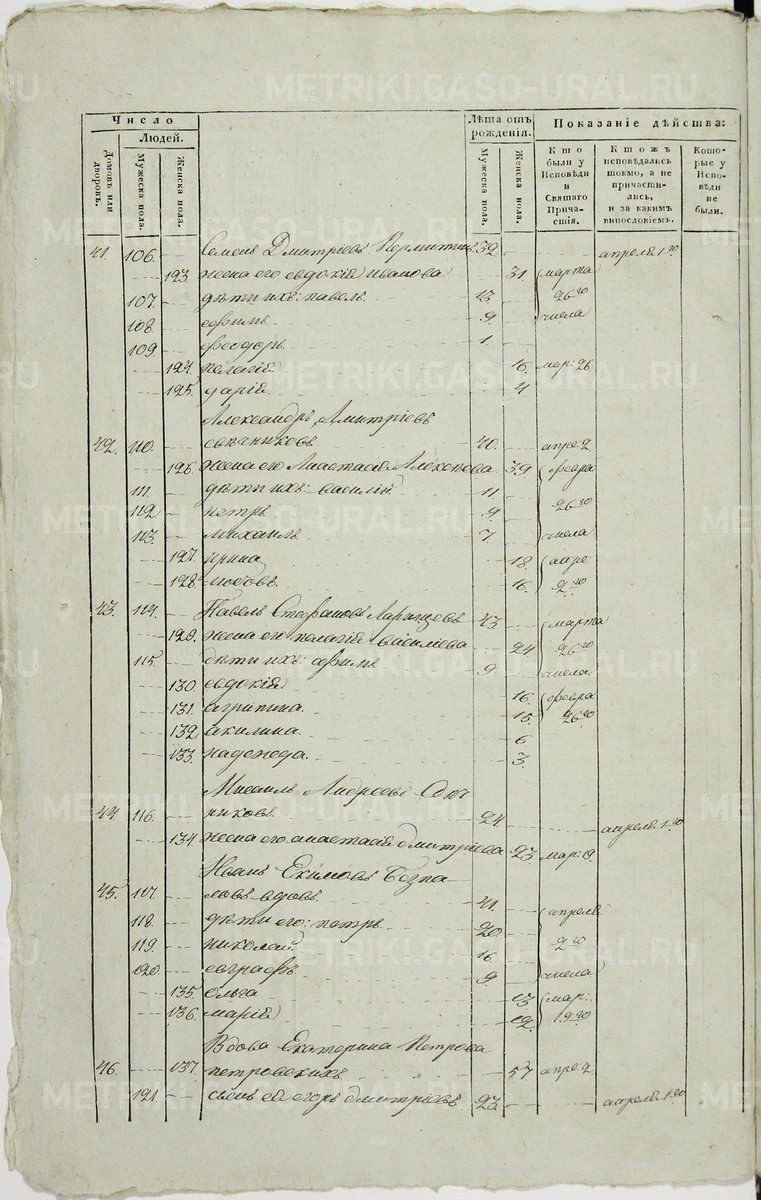 METRIKI.GASO-URAL.RU
Число
Людей.
Домовъ или дворовъ.
Мужеска пола.
Женска пола.
Лѣта отъ рожденія.
Мужеска пола.
Женска пола.
Показаніе дѣйства:
Кто были у Исповѣди и Святаго Причастія.
Ктожъ исповѣдались токмо, а не причастились, и за какимъ винословіемъ.
Которые у Исповѣди не были.
41. 106. Семенъ Дмитріевъ 32 апреля 1го
123. жена его евдокія иванова 31. марта
107. дѣти ихъ: павелъ 13. 26го
108. ефимъ 9. числа
109. феодоръ 1.
124. пелагія 16. мар: 26
125. дарія 4
Александръ Дмитріевъ
42. 110. 40. апре: 2
126. жена его Анастасія 39 февра
111. дѣти ихъ: василій 11. 26го
112 петръ 9.
113. михаилъ 7 числа
127. ирина 18. апре
128. любовь 16. 2го
43. 114. Павелъ Стефановъ 43. марта
129. жена его пелагія василіева 24. 26го
115. дѣти ихъ: ефимъ 9 числа
130. евдокія 16. февра
131. агрипина 15. 26го
132 акилина 6
133. надежда 3.
Андреевъ
44. 116. никовъ 24. апреля 1го
134. жена его анастасія дмитріева 23 мар: 19.
Иванъ Екимовъ
45. 117. вдовъ 41. апреля
118. дѣти его: петръ 20. 2го
119. николай 16.
120. евграфъ 9 числа
135. ольга 13 мар:
136. марія 12. 19го
Вдова Екатерина Петрова
46. 137. петровскихъ 57 апре: 2
121. сынъ ея егоръ дмитріевъ 23. апреля 1го